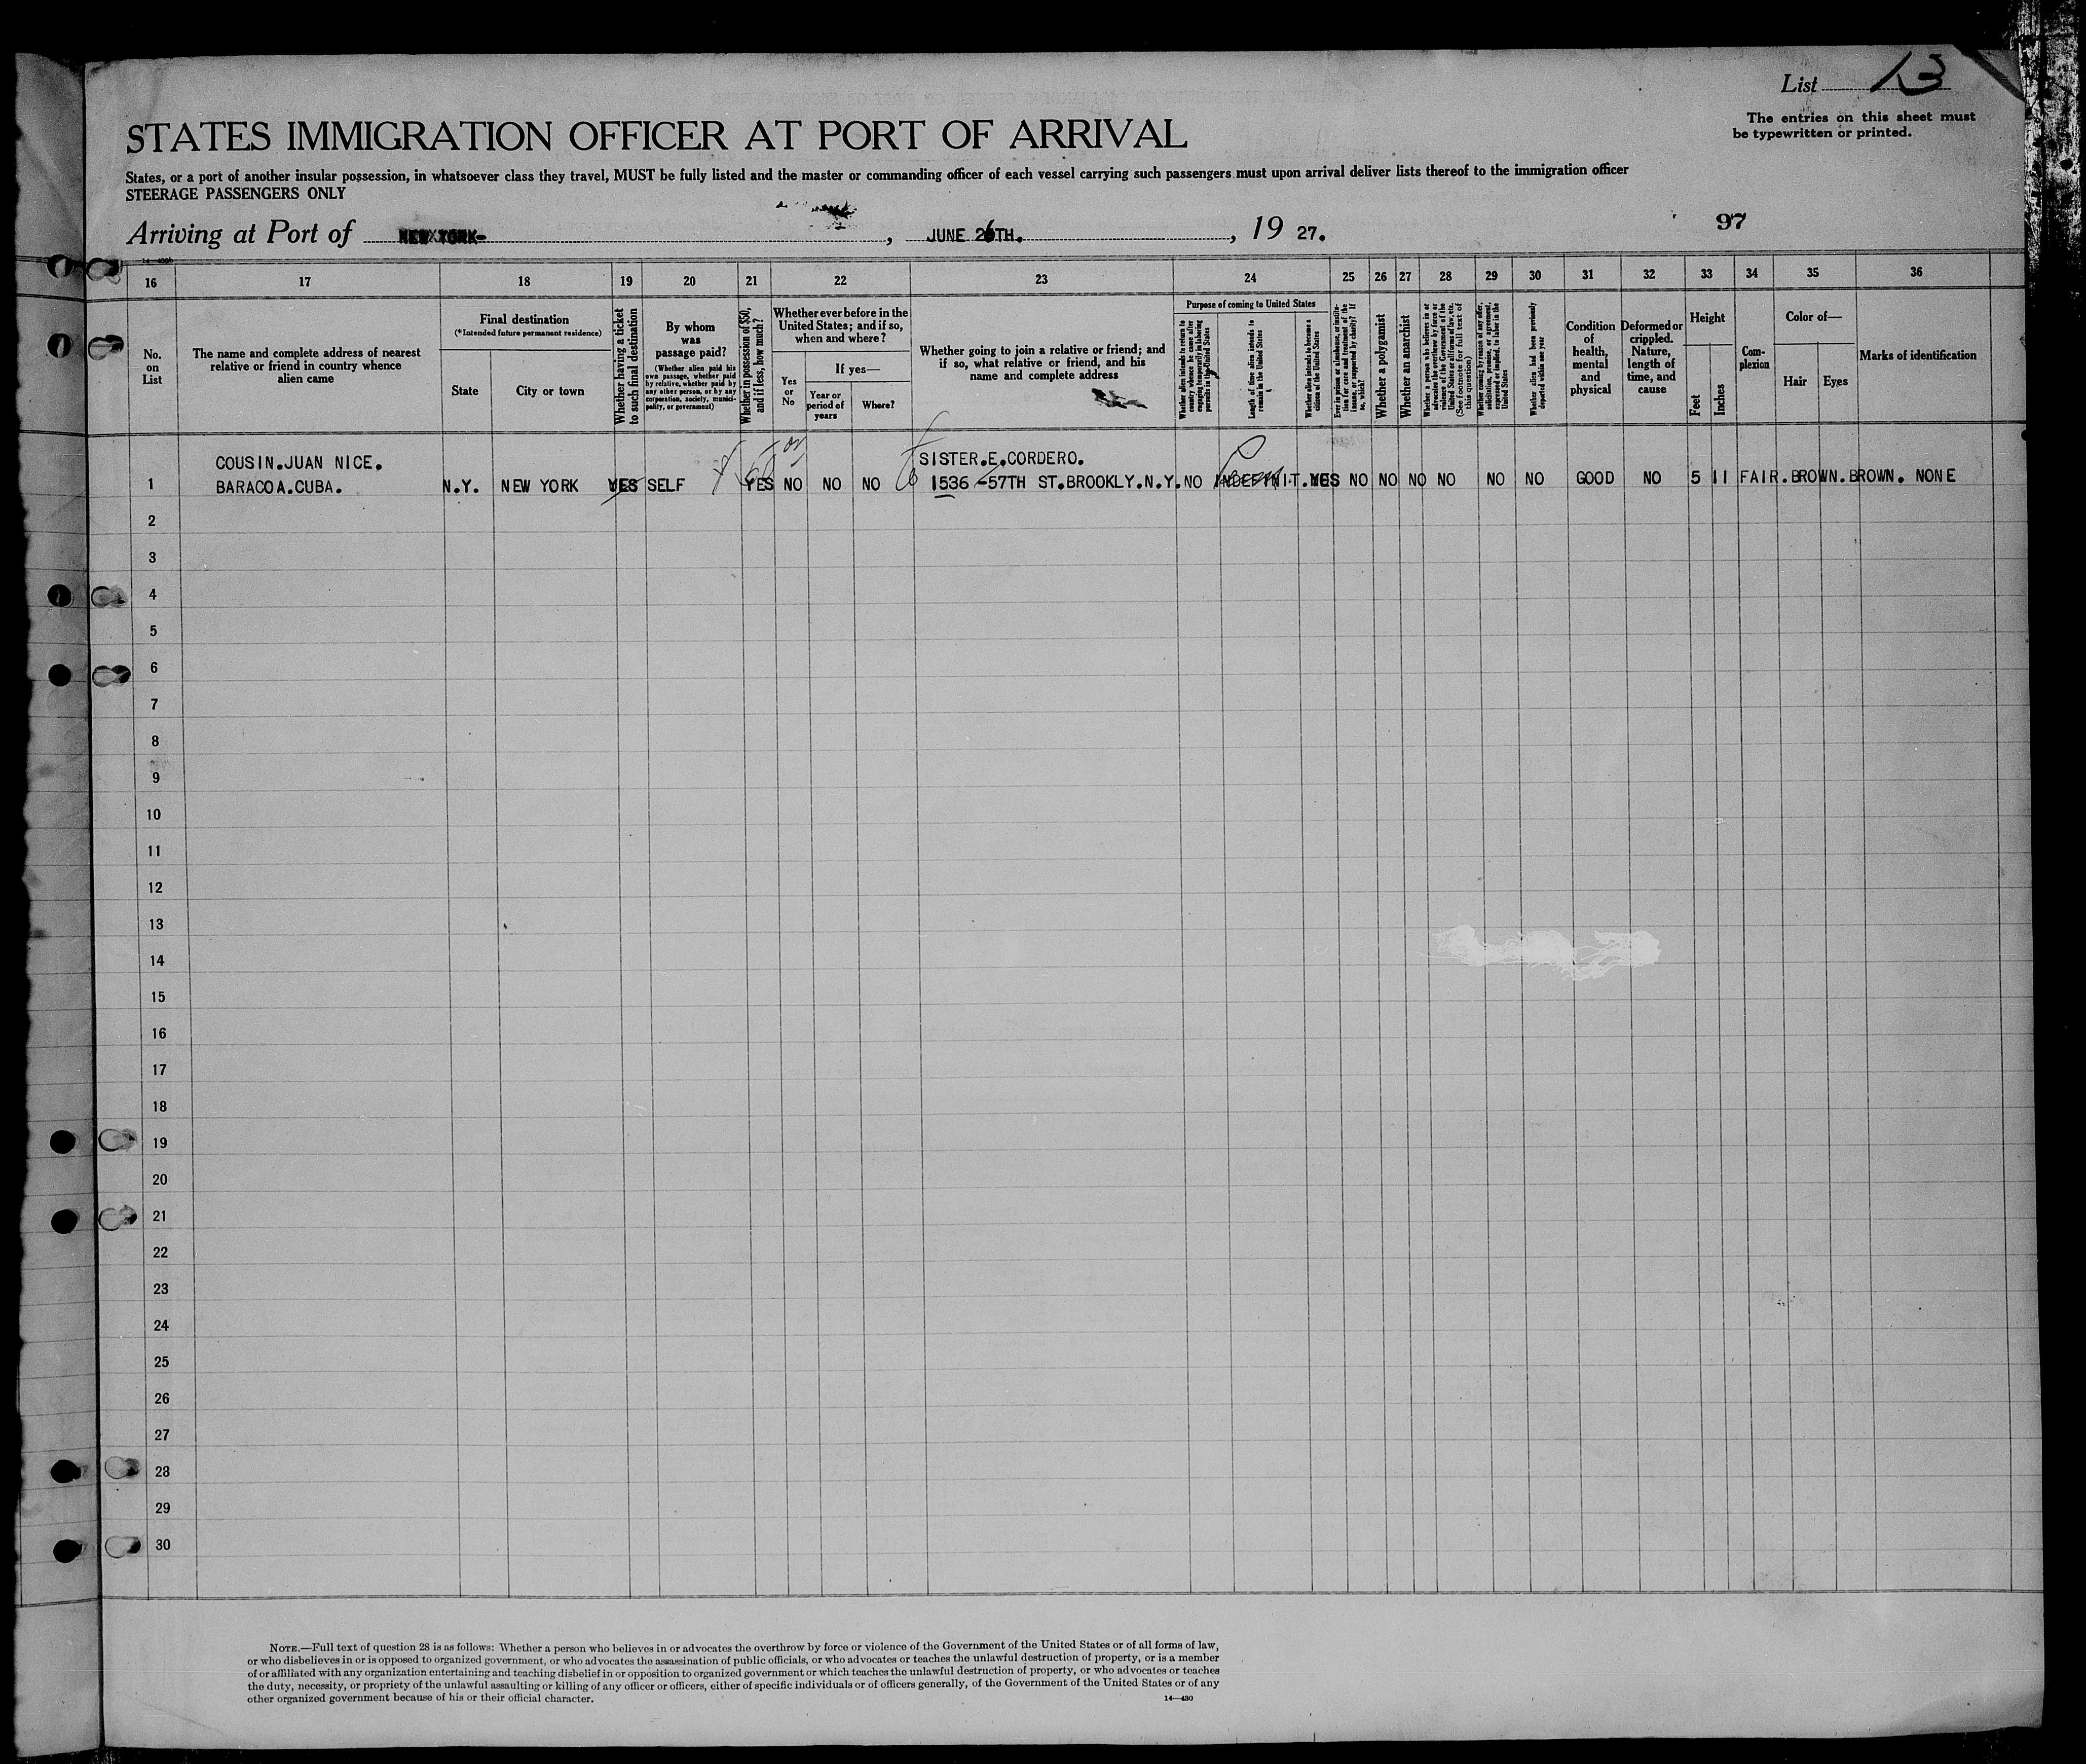 List 13
The entries on this sheet must
be typewritten or printed.
STATES IMMIGRATION OFFICER AT PORT OF ARRIVAL
States, or a port of another insular possession, in whatsoever class they travel, MUST be fully listed and the master or commanding officer of each vessel carrying such passengers must upon arrival deliver lists thereof to the immigration officer
STEERAGE PASSENGERS ONLY
Arriving at Port of NEW YORK- , JUNE 26TH. , 19 27.
97
16 17 18 19 20 21 22 23 24 25 26 27 28 29 30 31 32 33 34 35 36
No.
on
List
The name and complete address of nearest
relative or friend in country whence
alien came
Final destination
(*Intended future permanent residence)
State
City or town
Whether having a ticket
to such final destination
By whom
was
passage paid?
(Whether alien paid his
own passage, whether paid
by relative, whether paid by
any other person, or by any
corporation, society, munici-
pality, or government)
Whether in possession of $50,
and if less, how much?
Whether ever before in the
United States; and if so,
when and where?
Yes
or
No
If yes—
Year or
period of
years
Where?
Whether going to join a relative or friend; and
if so, what relative or friend, and his
name and complete address
Purpose of coming to United States
Whether alien intends to return to
country whence he came after
engaging temporarily in laboring
pursuits in the United States
Length of time alien intends to
remain in the United States
Whether alien intends to become a
citizen of the United States
Ever in prison or almshouse, or institu-
tion for care and treatment of the
insane, or supported by charity? If
so, which?
Whether a polygamist
Whether an anarchist
Whether a person who believes in or
advocates the overthrow by force or
violence of the Government of the
United States or all forms of law, etc.
(See footnote for full text of
this question)
Whether coming by reason of any offer,
solicitation, promise, or agreement,
expressed or implied, to labor in the
United States
Whether alien had been previously
deported within one year
Condition
of
health,
mental
and
physical
Deformed or
crippled.
Nature,
length of
time, and
cause
Height
Feet
Inches
Com-
plexion
Color of—
Hair
Eyes
Marks of identification
COUSIN.JUAN NICE. SISTER.E.CORDERO.
1 BARACOA.CUBA. N.Y. NEW YORK YES SELF YES NO NO NO 1536 -57TH ST.BROOKLY.N.Y. NO INDEFINIT. YES NO NO NO NO NO NO GOOD NO 5 11 FAIR. BROWN. BROWN. NONE
2
3
4
5
6
7
8
9
10
11
12
13
14
15
16
17
18
19
20
21
22
23
24
25
26
27
28
29
30
NOTE.—Full text of question 28 is as follows: Whether a person who believes in or advocates the overthrow by force or violence of the Government of the United States or of all forms of law,
or who disbelieves in or is opposed to organized government, or who advocates the assassination of public officials, or who advocates or teaches the unlawful destruction of property, or is a member
of or affiliated with any organization entertaining and teaching disbelief in or opposition to organized government or which teaches the unlawful destruction of property, or who advocates or teaches
the duty, necessity, or propriety of the unlawful assaulting or killing of any officer or officers, either of specific individuals or of officers generally, of the Government of the United States or of any
other organized government because of his or their official character.
14—430